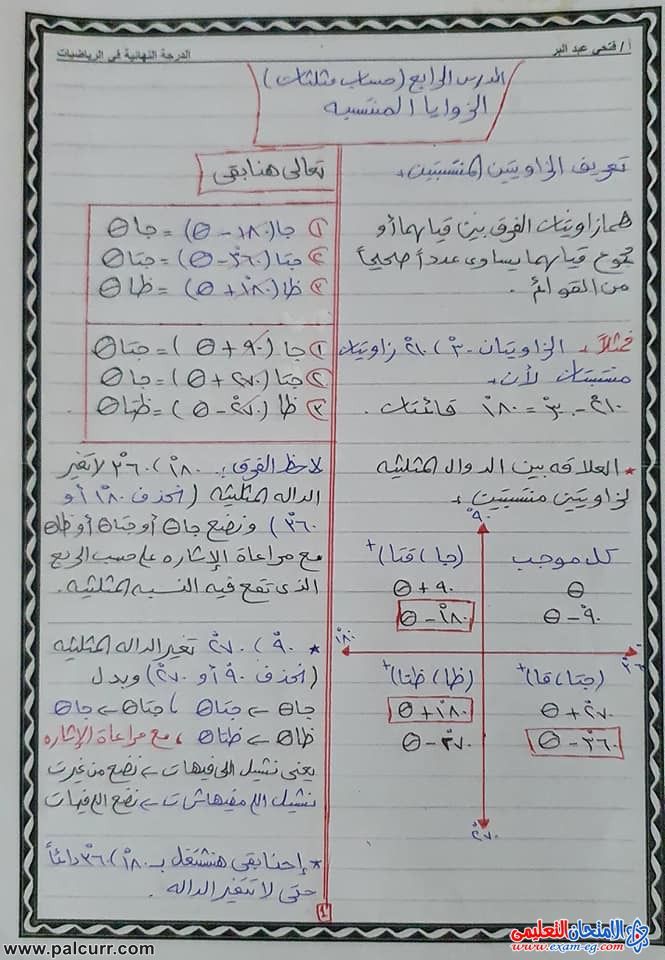 أ/ فتحى عبد البر
الدرجة النهائية في الرياضيات
الدرس الرابع (حساب مثلثات)
الزوايا المنتسبه
تعريف الزاويتين المنتسبتين
هما زاويتان الفرق بين قياسهما أو
مجموع قياسهما يساوى عدداً صحيحاً
من القوائم .
فمثلاً الزاويتان ٣٠° ، ٢١٠° زاويتان
منتسبتان لأن
٢١٠° - ٣٠° = ١٨٠° قائمتان .
* العلاقه بين الدوال المثلثيه
لزاويتين منتسبتين
٩٠°
كل موجب
θ
٩٠° - θ
(جا ، قتا)+
٩٠ + θ
١٨٠° - θ
١٨٠°
٣٦٠°
(ظا ، ظتا)+
١٨٠° + θ
٢٧٠° - θ
(جتا ، قا)+
٢٧٠ + θ
٣٦٠° - θ
٢٧٠°
تعالى هنا بقى
١ جا (١٨٠ - θ) = جا θ
٢ جتا (٣٦٠° - θ) = جتا θ
٣ ظا (١٨٠° + θ) = ظا θ
١ جا (٩٠ + θ) = جتا θ
٢ جتا (٢٧٠ + θ) = جا θ
٣ ظا (٢٧٠ - θ) = ظتا θ
لاحظ الفرق : ١٨٠° ، ٣٦٠° لا تغير
الداله المثلثيه (نحذف ١٨٠° أو
٣٦٠°) ونضع جا θ أو جتا θ أو ظا θ
مع مراعاة الإشاره على حسب الربع
الذى تقع فيه النسبه المثلثيه .
* ٩٠° ، ٢٧٠° تغير الداله المثلثيه
(نحذف ٩٠° أو ٢٧٠°) وبدل
جا θ ← جتا θ ، جتا θ ← جا θ
ظا θ ← ظتا θ ، مع مراعاة الإشاره
يعنى نشيل اللى فيها ت ← نضع من غير ت
نشيل اللى مفيهاش ت ← نضع اللى فيها ت
* إحنا بقى هنشتغل بـ ١٨٠° ، ٣٦٠° دائماً
حتى لا تتغير الداله .
١
الامتحان التعليمى
www.exam-eg.com
www.palcurr.com